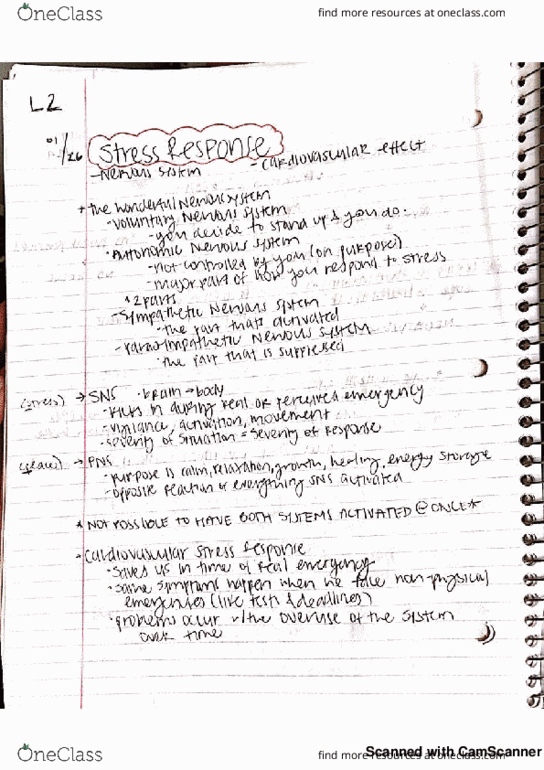 OneClass
find more resources at oneclass.com
L2
01/26
Stress Response
-Nervous System
-Cardiovascular effect
+ the wonderful Nervous System
-Voluntary Nervous System
-you decide to stand up & you do.
-Autonomic Nervous System
-not controlled by you (on purpose)
-major part of how you respond to stress
*2 parts
-Sympathetic Nervous System
-the part that's activated
-parasympathetic Nervous System
-the part that is suppressed
(stress) → SNS · brain → body
·kicks in during real or perceived emergency
-vigilance, activation, movement
·severity of situation = severity of response
→ PNS
-purpose is calm, relaxation, growth, healing, energy storage
-opposite reaction of everything SNS activated
* NOT POSSIBLE TO HAVE BOTH SYSTEMS ACTIVATED @ ONCE*
-Cardiovascular stress response
·saves us in time of real emergency
·same symptoms happen when we face non-physical
emergencies (like tests & deadlines)
·problems occur w/the overuse of the system
over time
OneClass
find more resources at oneclass.com
Scanned with CamScanner